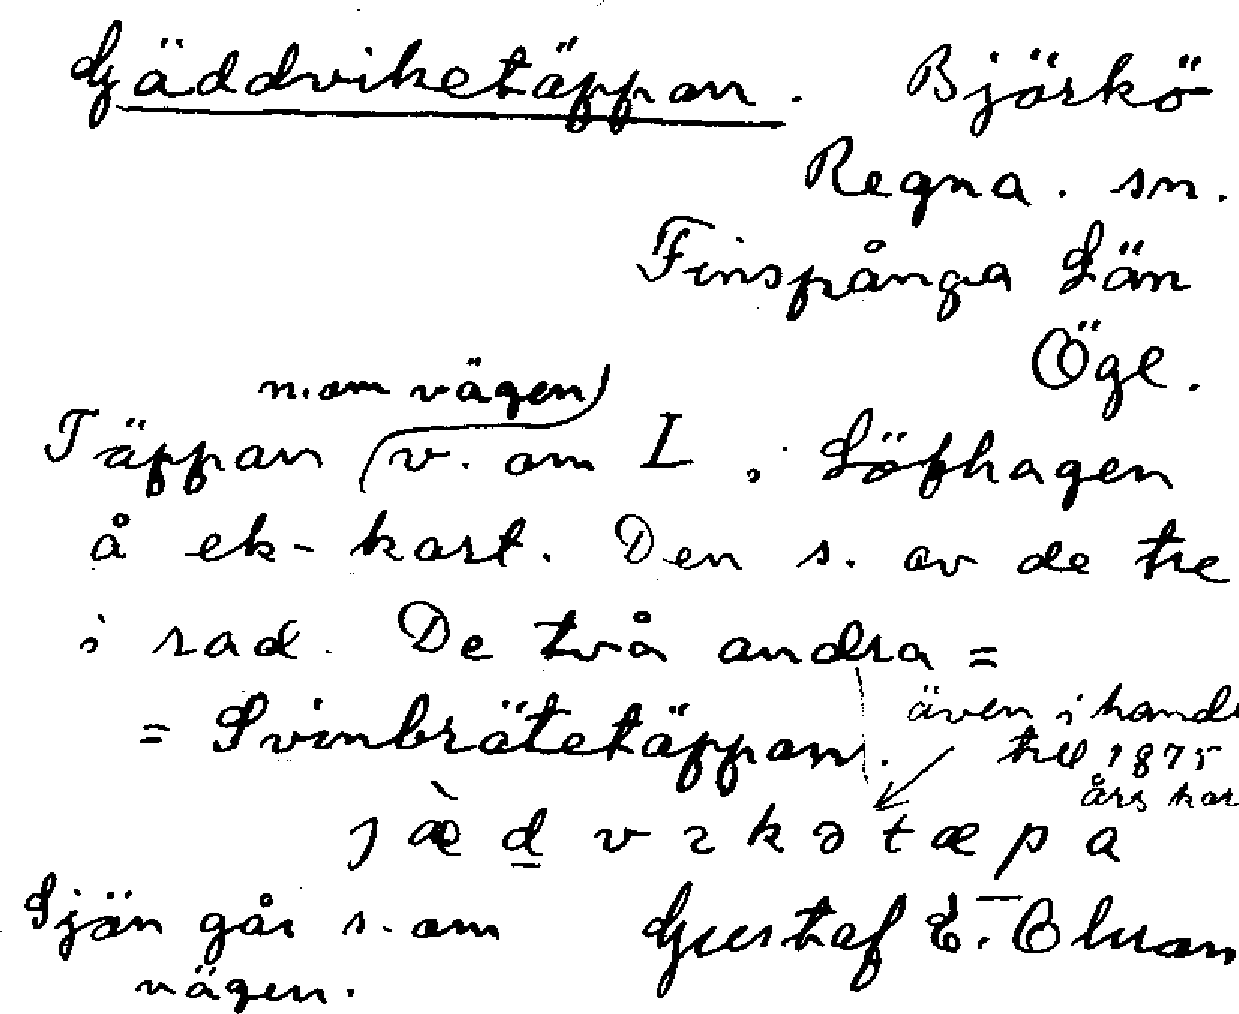 Gäddviketäppan. Björkö
Regna. sn.
Finspånga Län
Ögl.
n. om vägen
Täppan v. om L, Löfhagen
å ek-kart. Den s. av de tre
i rad. De två andra =
= Svinbrätetäppan.
även i handl
till 1875
års kar
j æ̀ d v ɩ k ə t æ p a
Sjön går s. om
vägen.
Gustaf E. Olsson